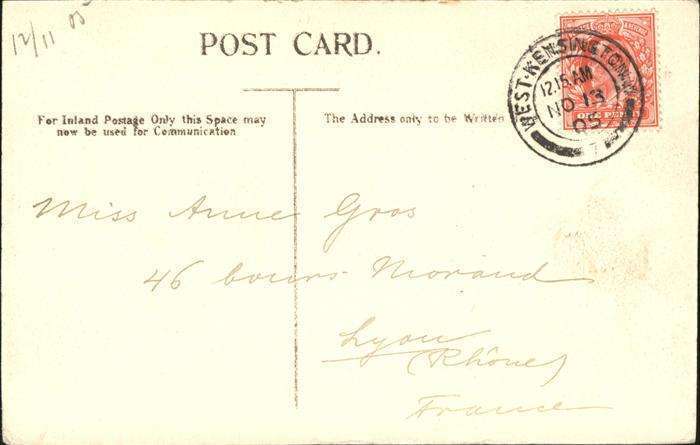 12/11 05
POST CARD.
WEST-KENSINGTON.W.
12.15 AM
NO 13
05
7
ONE PEN
For Inland Postage Only this Space may
now be used for Communication
The Address only to be Written
Miss Anne Gros
46 cours Morand
Lyon
(Rhône)
France